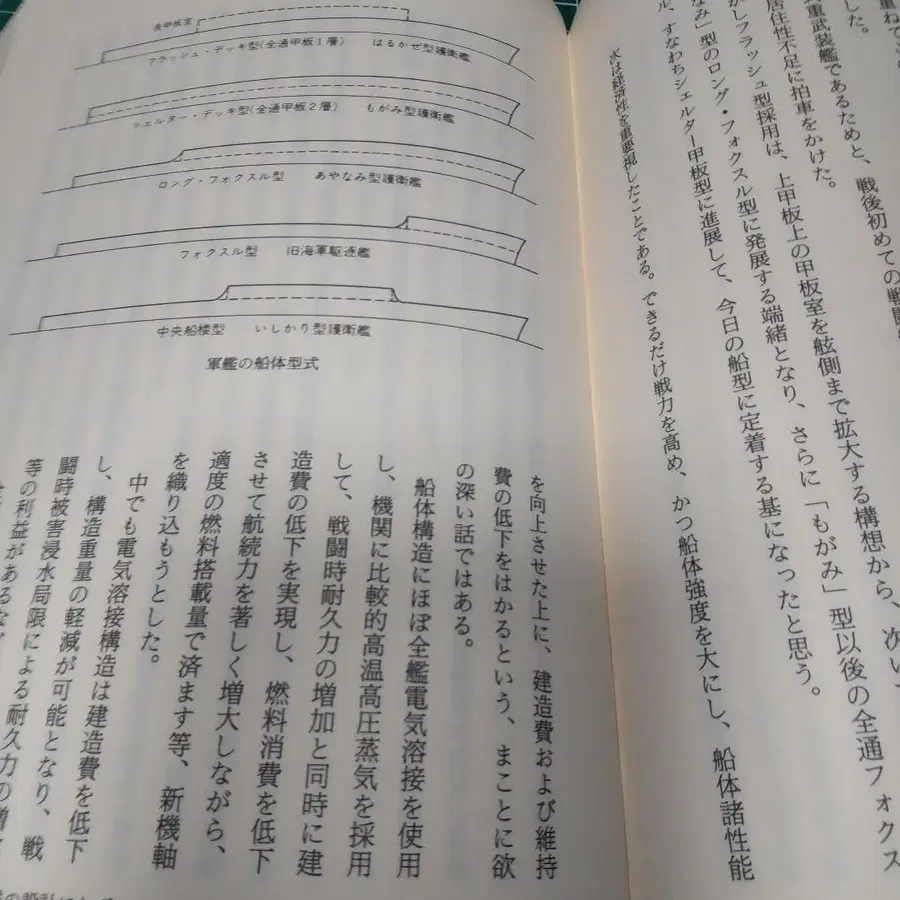 重ねて
した。
重武装艦であるためと、戦後初めての戦闘
居住性不足に拍車をかけた。
かしフラッシュ型採用は、上甲板上の甲板室を舷側まで拡大する構想から、次い
なみ」型のロング・フォクスル型に発展する端緒となり、さらに「もがみ」型以後の全通フォクス
ル、すなわちシェルター甲板型に進展して、今日の船型に定着する基になったと思う。
次は経済性を重要視したことである。できるだけ戦力を高め、かつ船体強度を大にし、船体諸性能
長甲板室
フラッシュ・デッキ型(全通甲板1層) はるかぜ型護衛艦
シェルター・デッキ型(全通甲板2層) もがみ型護衛艦
ロング・フォクスル型 あやなみ型護衛艦
フォクスル型 旧海軍駆逐艦
中央船楼型 いしかり型護衛艦
軍艦の船体型式
を向上させた上に、建造費および維持
費の低下をはかるという、まことに欲
の深い話ではある。
船体構造にほぼ全艦電気溶接を使用
し、機関に比較的高温高圧蒸気を採用
して、戦闘時耐久力の増加と同時に建
造費の低下を実現し、燃料消費を低下
させて航続力を著しく増大しながら、
適度の燃料搭載量で済ます等、新機軸
を織り込もうとした。
中でも電気溶接構造は建造費を低下
し、構造重量の軽減が可能となり、戦
闘時被害浸水局限による耐久力の増
等の利益があるなど